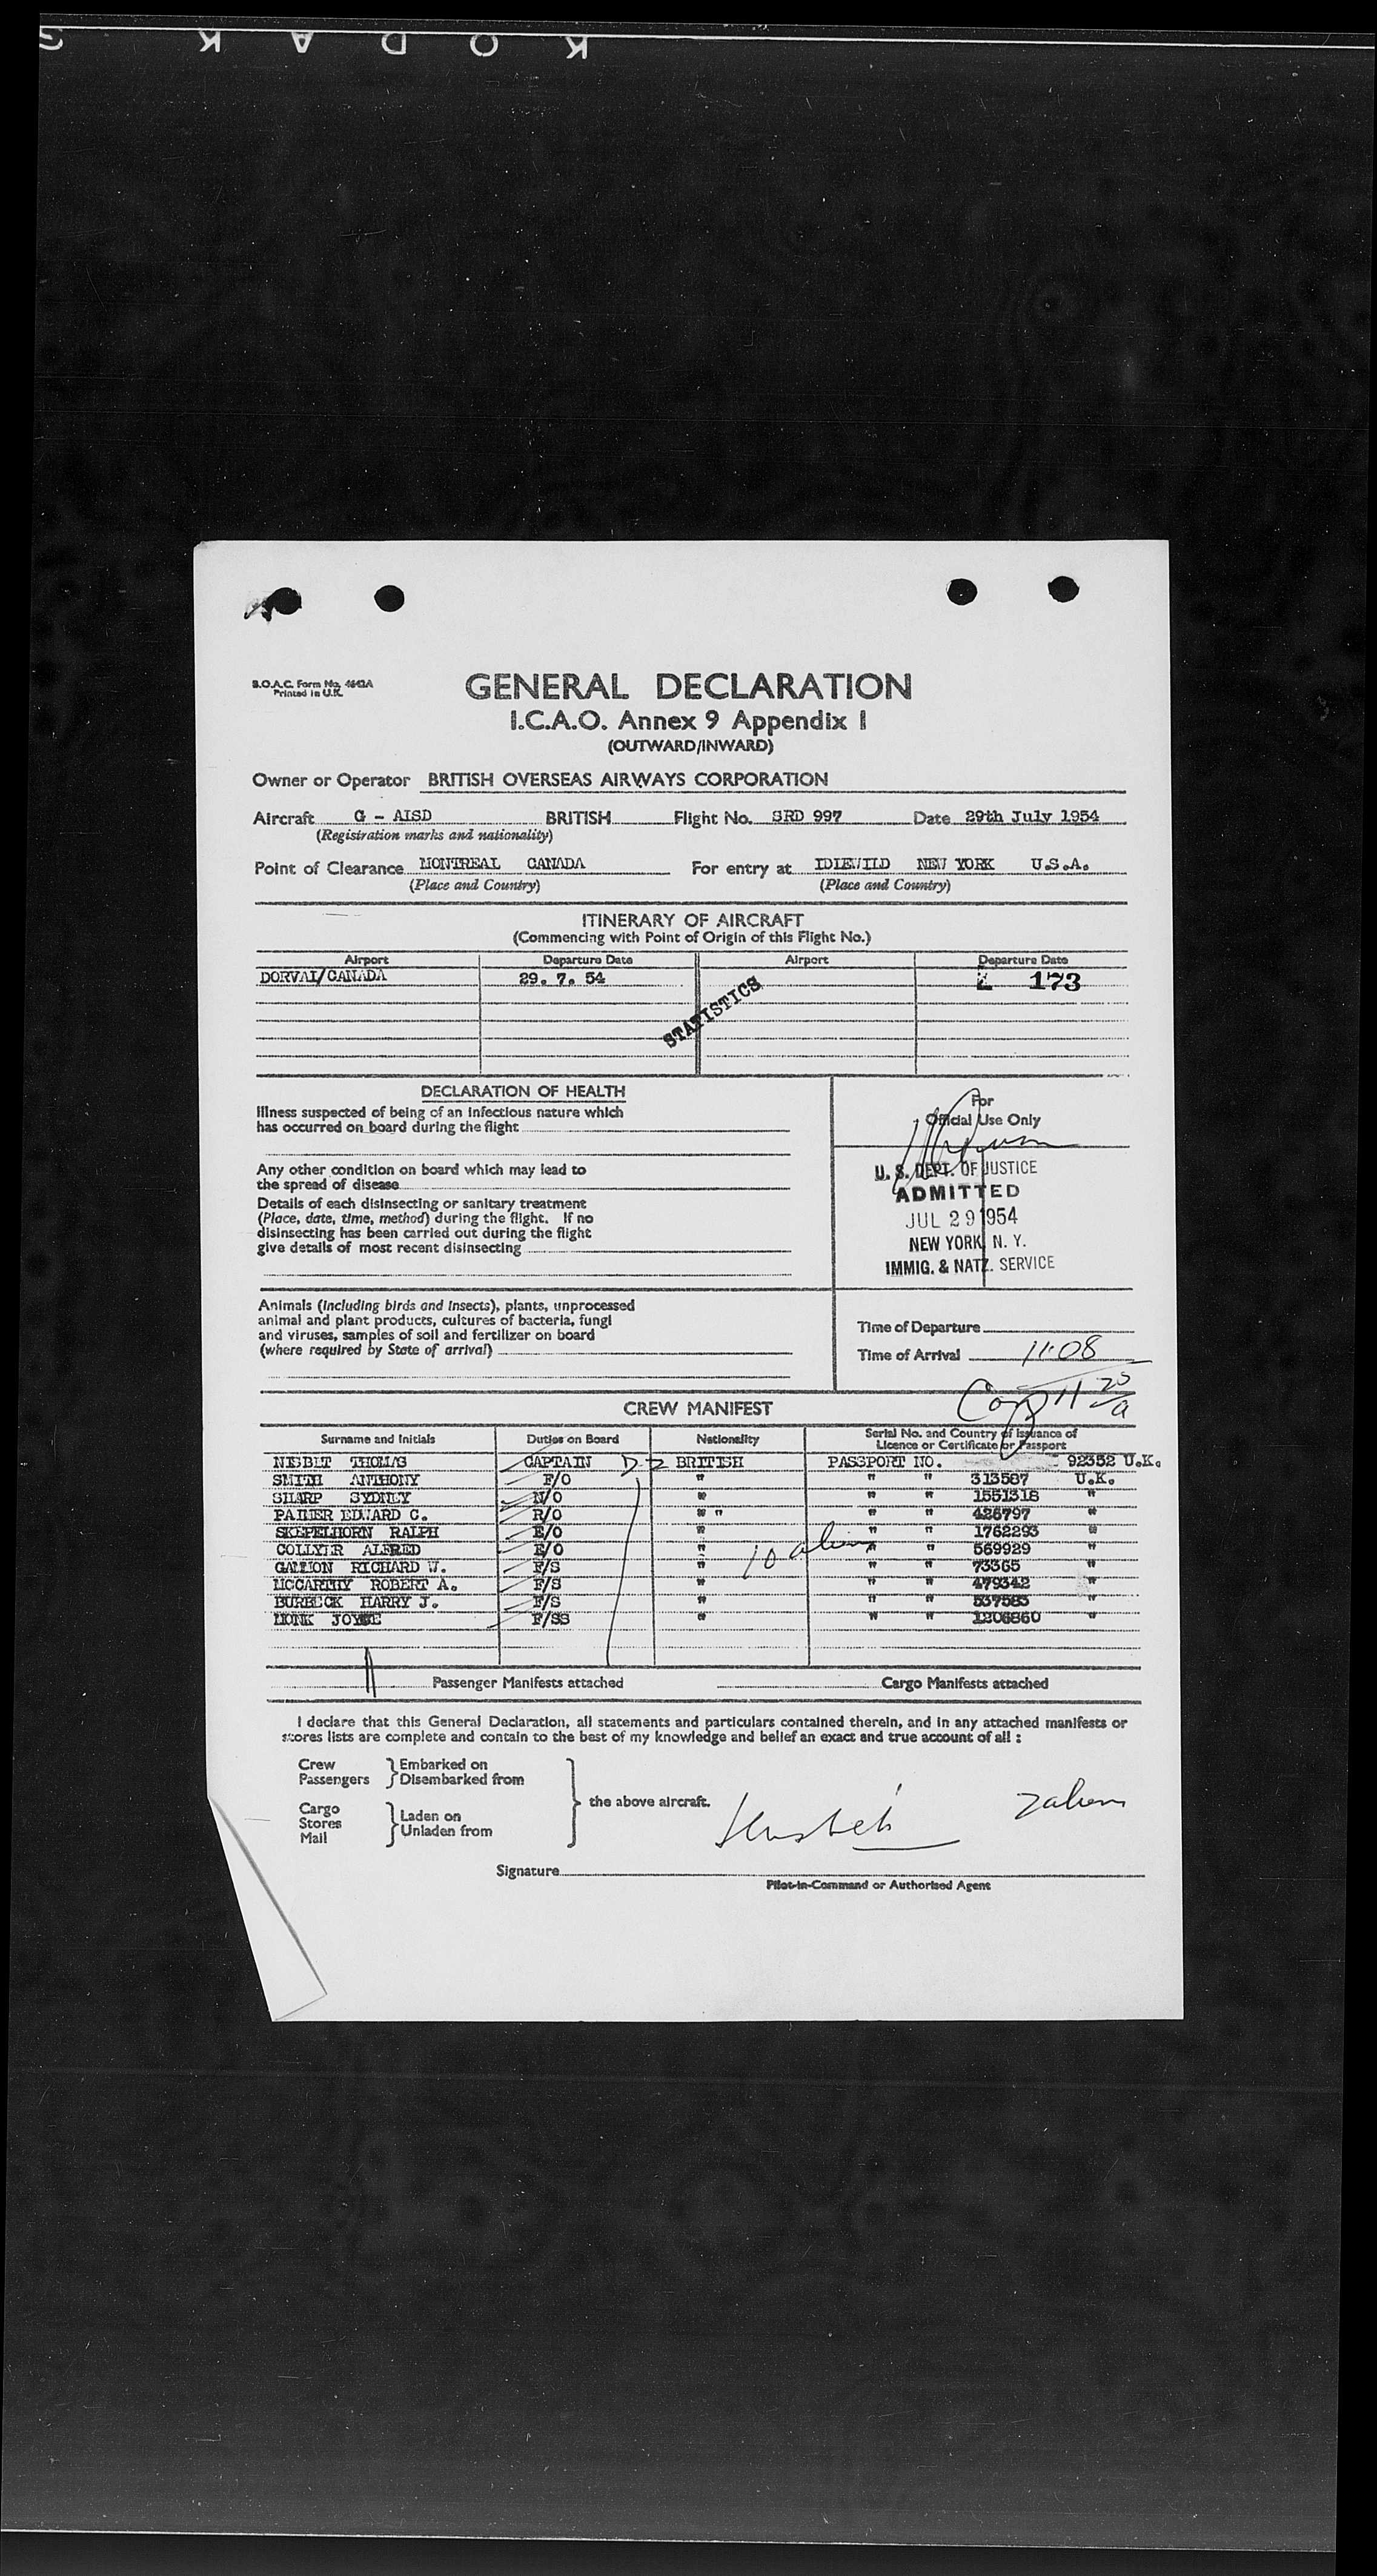 KODAK S
B.O.A.C. Form No. 4642A
Printed in U.K.
GENERAL DECLARATION
I.C.A.O. Annex 9 Appendix 1
(OUTWARD/INWARD)
Owner or Operator BRITISH OVERSEAS AIRWAYS CORPORATION
Aircraft G - AISD BRITISH Flight No. SRD 997 Date 29th July 1954
(Registration marks and nationality)
Point of Clearance MONTREAL CANADA For entry at IDLEWILD NEW YORK U.S.A.
(Place and Country) (Place and Country)
ITINERARY OF AIRCRAFT
(Commencing with Point of Origin of this Flight No.)
Airport Departure Date Airport Departure Date
DORVAL/CANADA 29. 7. 54 173
STATISTICS
DECLARATION OF HEALTH
Illness suspected of being of an infectious nature which
has occurred on board during the flight
Any other condition on board which may lead to
the spread of disease
Details of each disinsecting or sanitary treatment
(Place, date, time, method) during the flight. If no
disinsecting has been carried out during the flight
give details of most recent disinsecting
For
Official Use Only
U. S. DEPT. OF JUSTICE
ADMITTED
JUL 29 1954
NEW YORK, N. Y.
IMMIG. & NATZ. SERVICE
Animals (including birds and insects), plants, unprocessed
animal and plant products, cultures of bacteria, fungi
and viruses, samples of soil and fertilizer on board
(where required by State of arrival)
Time of Departure
Time of Arrival 11.08
CREW MANIFEST
Surname and Initials Duties on Board Nationality Serial No. and Country of Issuance of
Licence or Certificate or Passport
NESBLT THOMAS CAPTAIN D-2 BRITISH PASSPORT NO. 92352 U.K.
SMITH ANTHONY F/O " " " 313587 U.K.
SHARP SYDNEY N/O " " " 1551318 "
PALMER EDWARD C. R/O " " " " 426797 "
SKEPELHORN RALPH E/O " " " 1762293 "
COLLYER ALFRED E/O " 10 aliens " " 569929 "
GALLION RICHARD W. F/S " " " 73365 "
MCCARTHY ROBERT A. F/S " " " 479342 "
BURBECK HARRY J. F/S " " " 537583 "
MONK JOYCE F/SS " " " 1206860 "
Passenger Manifests attached Cargo Manifests attached
I declare that this General Declaration, all statements and particulars contained therein, and in any attached manifests or
stores lists are complete and contain to the best of my knowledge and belief an exact and true account of all :
Crew Embarked on
Passengers Disembarked from
the above aircraft.
Cargo
Stores Laden on
Mail Unladen from
Signature
Pilot-in-Command or Authorised Agent